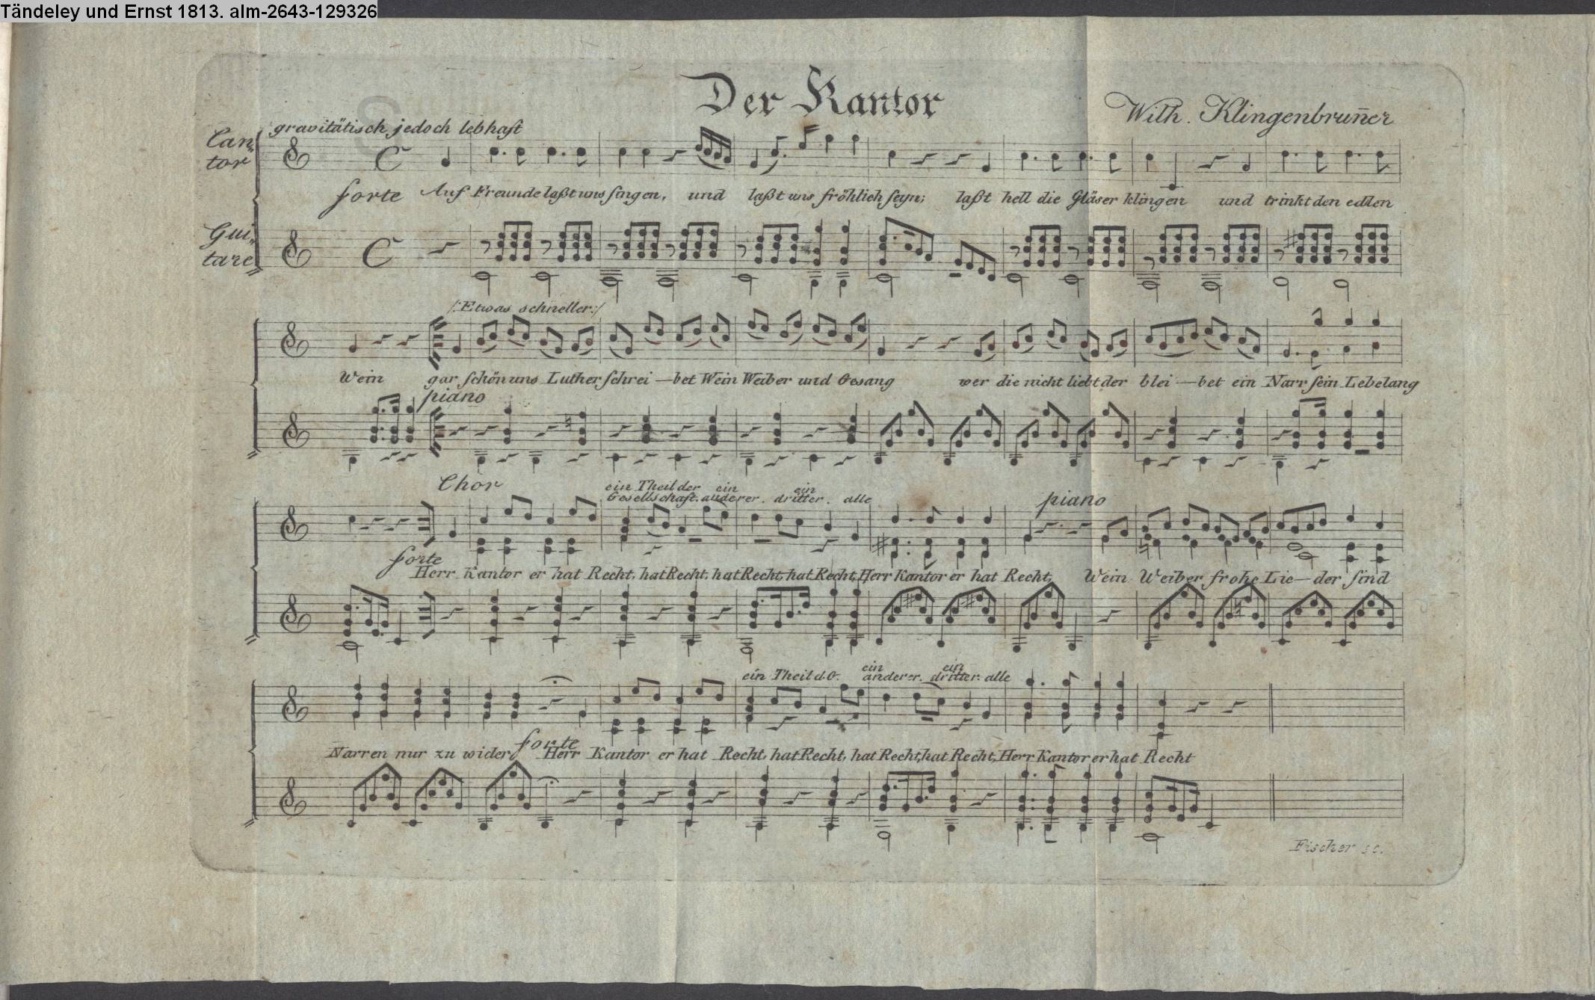 Tändeley und Ernst 1813. alm-2643-129326
Der Kantor
Wilh. Klingenbrun̄er
gravitätisch jedoch lebhaft
Can-
tor
forte Auf Freunde laßt uns singen, und laßt uns fröhlich seyn; laßt hell die Gläser klingen und trinkt den edlen
Gui-
tare
/:Etwas schneller:/
Wein gar schön uns Luther schrei-bet Wein Weiber und Gesang wer die nicht liebt der blei-bet ein Narr sein Lebelang
piano
Chor
ein Theil der ein ein
Gesellschaft. anderer. dritter. alle
piano
forte
Herr Kantor er hat Recht, hat Recht, hat Recht, hat Recht, Herr Kantor er hat Recht, Wein Weiber frohe Lie-der sind
ein Theil d.G. ein anderer. ein dritter. alle
Narren nur zu wider forte Herr Kantor er hat Recht, hat Recht, hat Recht, hat Recht, Herr Kantor er hat Recht
Fischer sc.